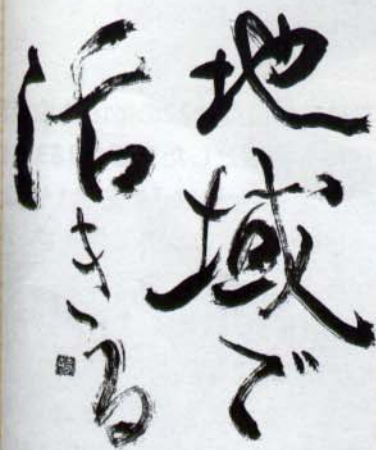 地域で
活きる